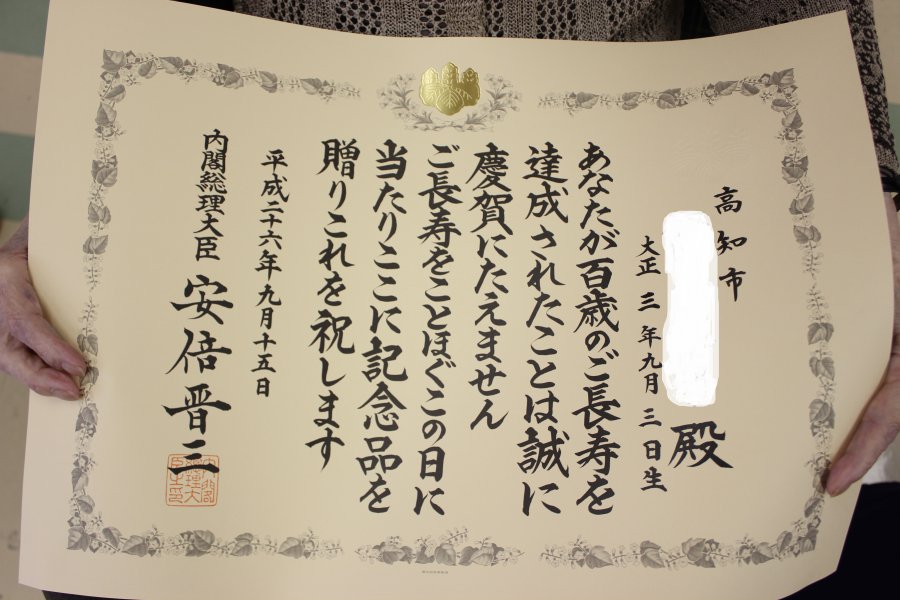 高知市
殿
大正三年九月三日生
あなたが百歳のご長寿を
達成されたことは誠に
慶賀にたえません
ご長寿をことほぐこの日に
当たりここに記念品を
贈りこれを祝します
平成二十六年九月十五日
内閣総理大臣 安倍晋三